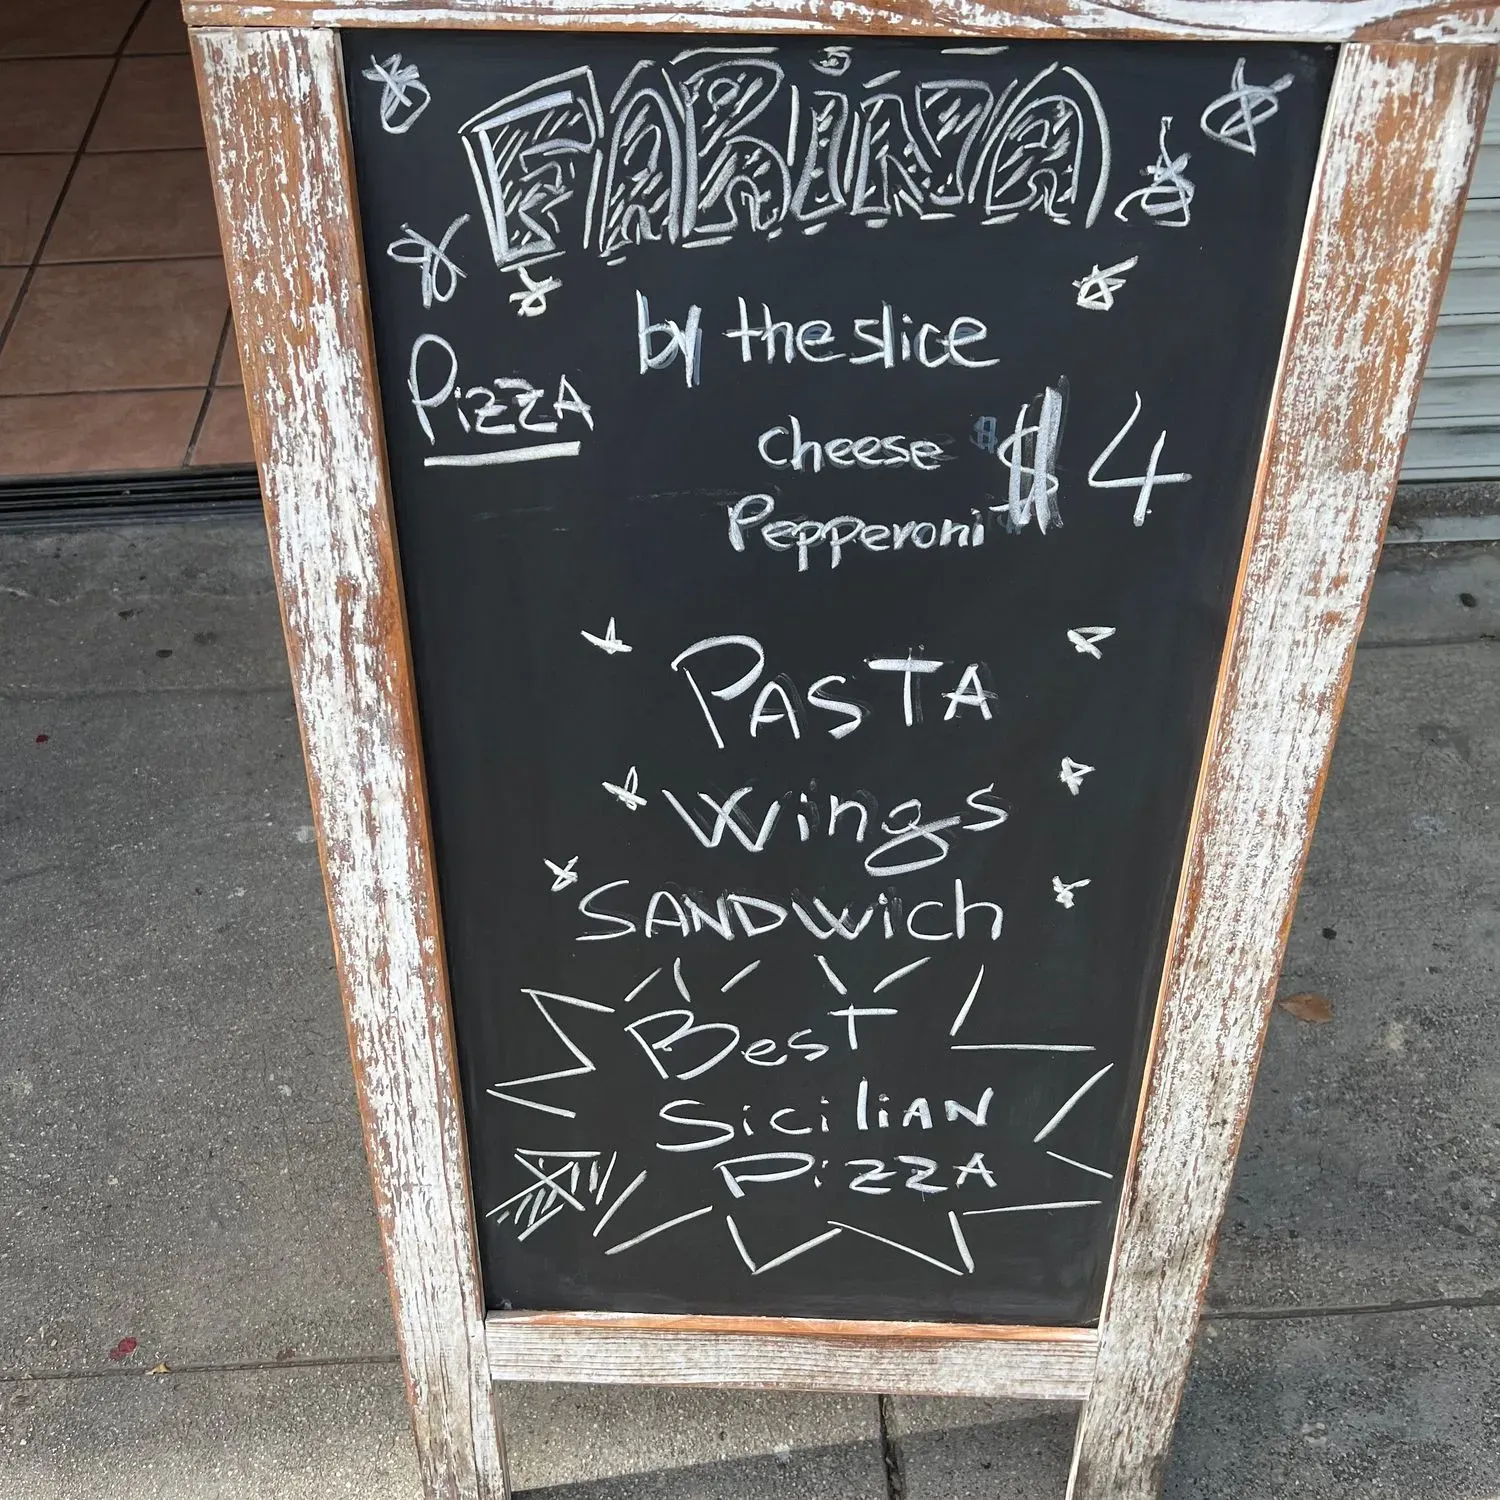 FARiNA
by the slice
Pizza
cheese $4
Pepperoni
PASTA
Wings
SANDWich
BesT
SiciliAN
PizzA